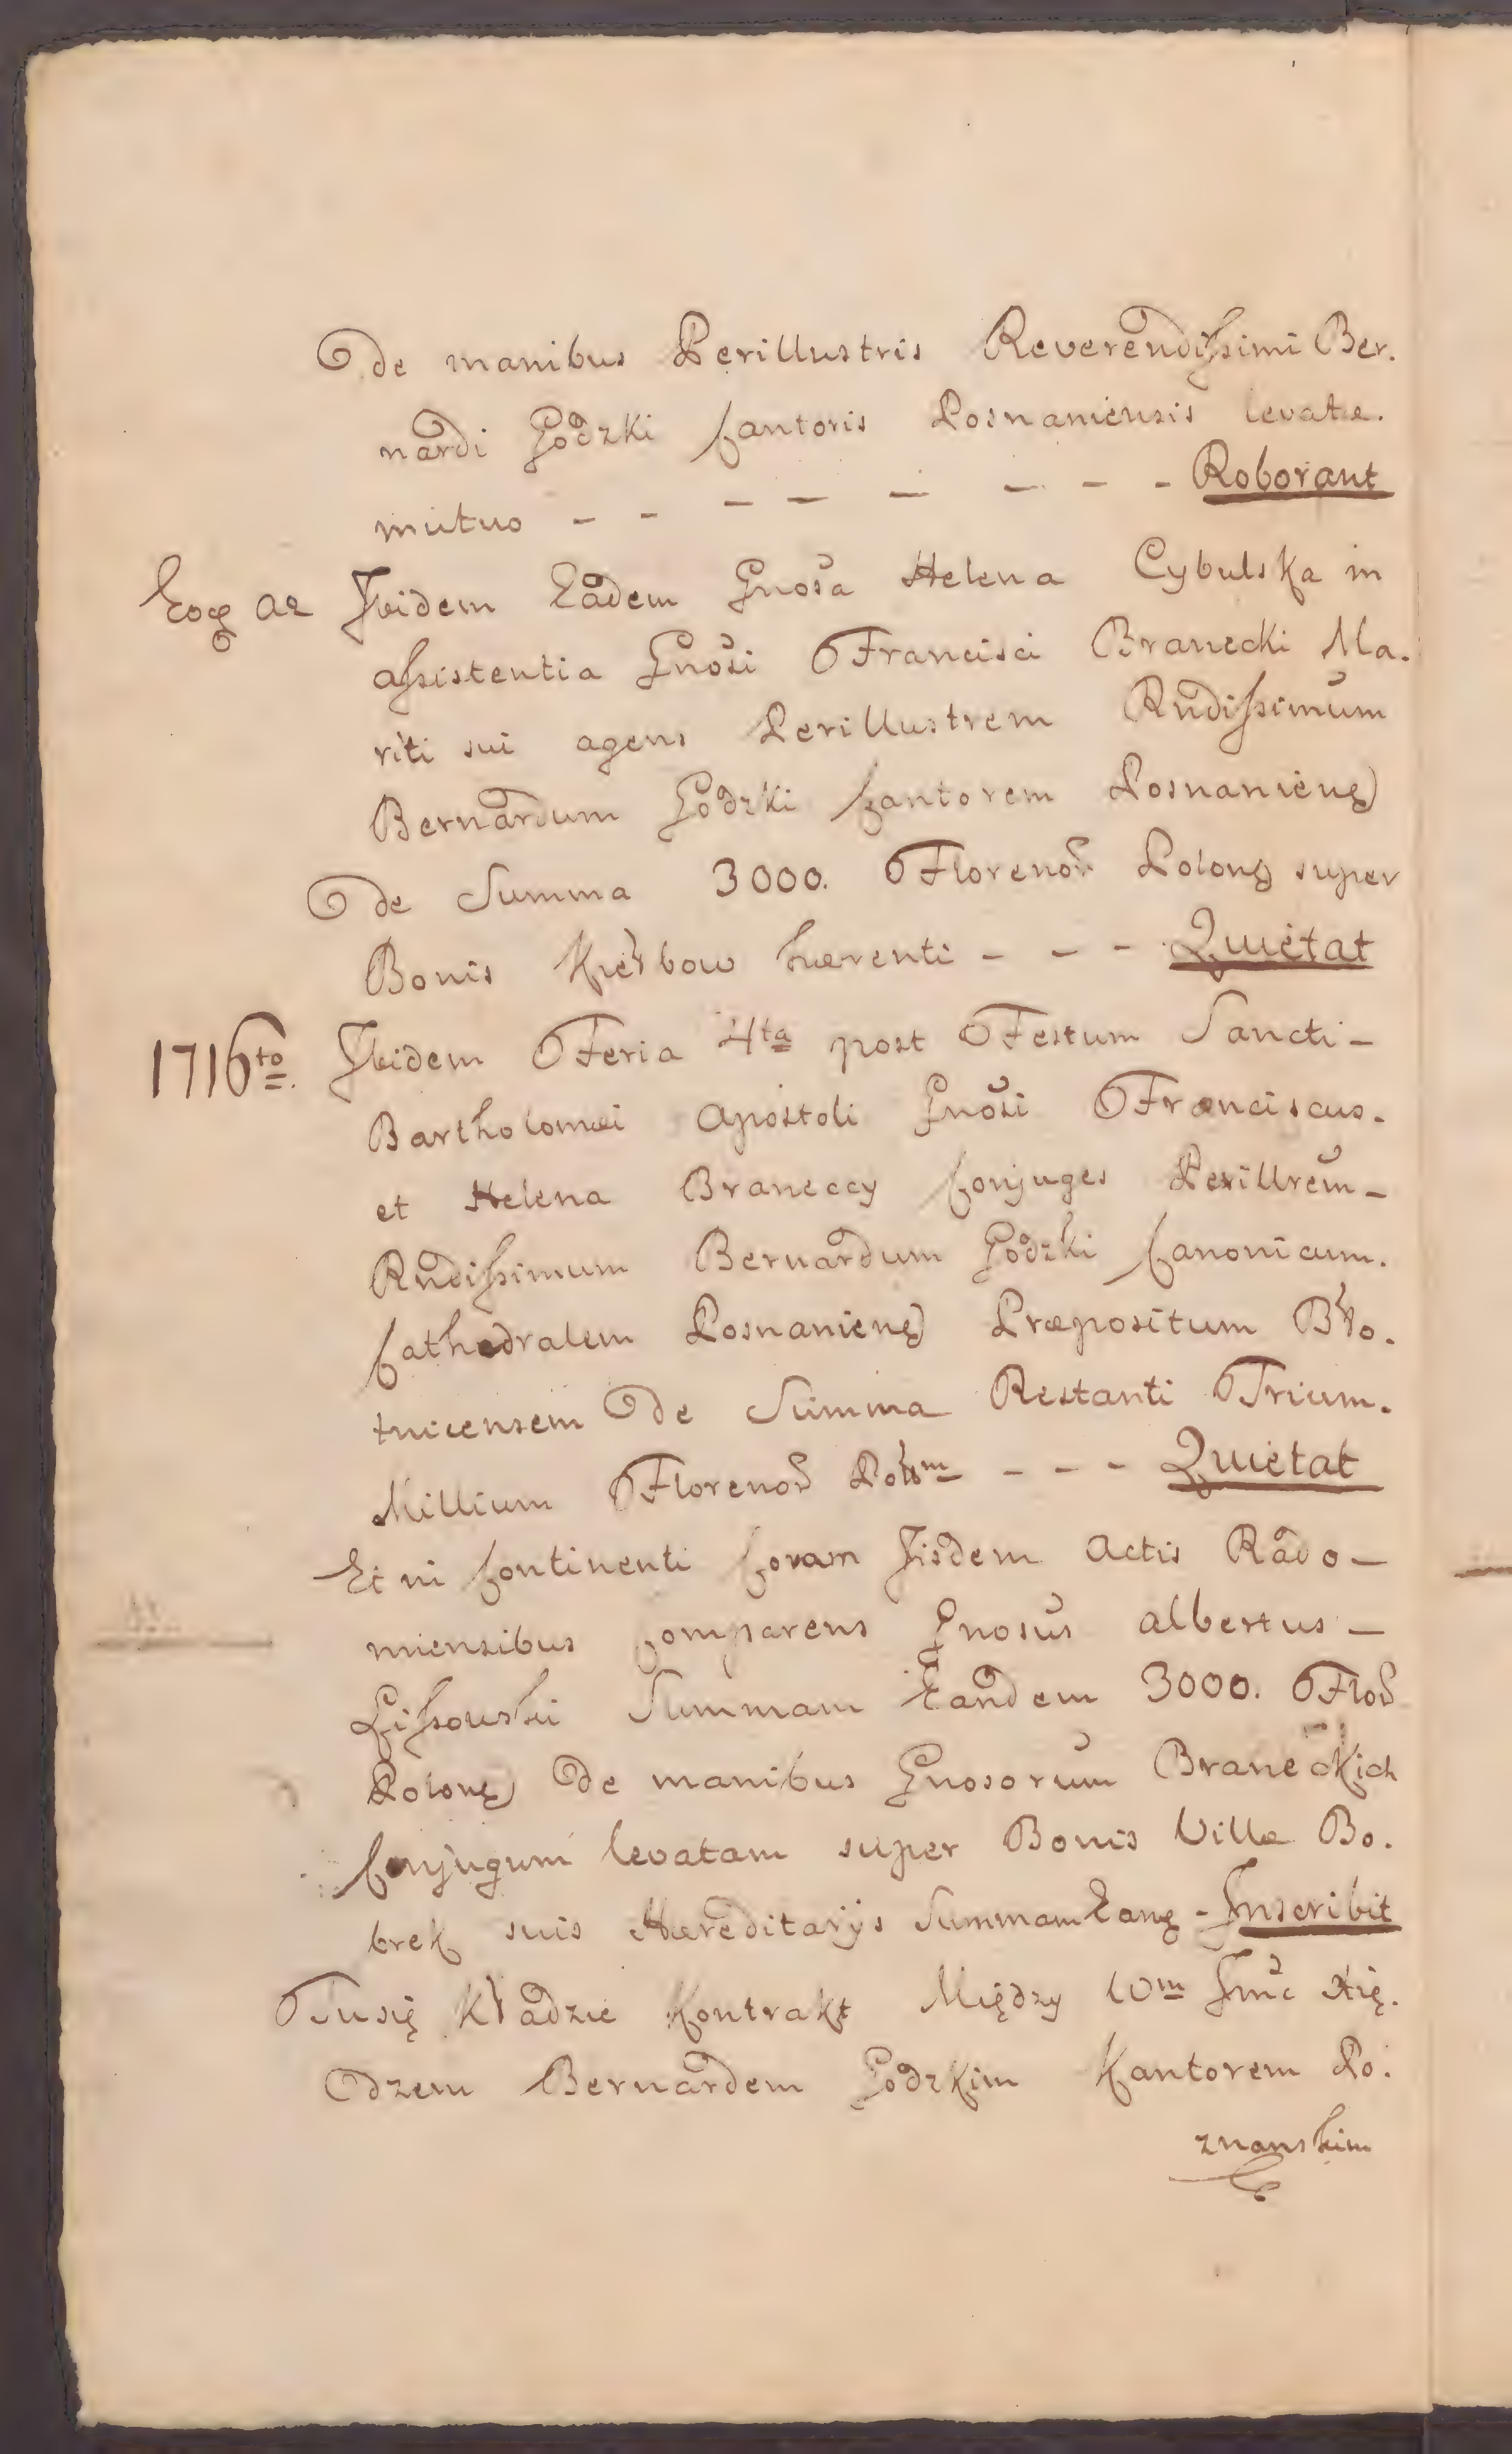 De manibus Perillustris Reverendissimi Ber.
nardi Godzki Cantoris Posnaniensis levatæ.
mutuo - - - - - - - - Roborant
Eoq ao Ibidem Eadem Gnosa Helena Cybulska in
assistentia Gnosi Francisci Branecki Ma.
riti sui agens Perillustrem Rndissimum
Bernardum Godzki Cantorem Posnanieng
De Summa 3000. Florenor Polong super
Bonis hærenti - - - Quietat
1716to. Ibidem Feria 4ta post Festum Sancti -
Bartholomæi Apostoli Gnosi Franciscus.
et Helena Braneccy Conjuges Perillrem -
Rndissimum Bernardum Godzki Canonicum.
Cathedralem Posnanieng Præpositum Bło.
tnicensem De Summa Restanti Trium.
Millium Florenor Polom - - - Quietat
Et in Continenti Coram Iisdem Actis Rado -
miensibus Comparens Gnosus Albertus -
Lissowski Summam Eandem 3000. Flor
Polong De manibus Gnosorum Braneckich
Conjugum levatam super Bonis Villæ Bo.
brek suis Hæreditarijs Summam Eang - Inscribit
Tu się Kładzie Kontrakt Między Wm Jmć Xię.
dzem Bernardem Godzkim Kantorem Po.
znanskim